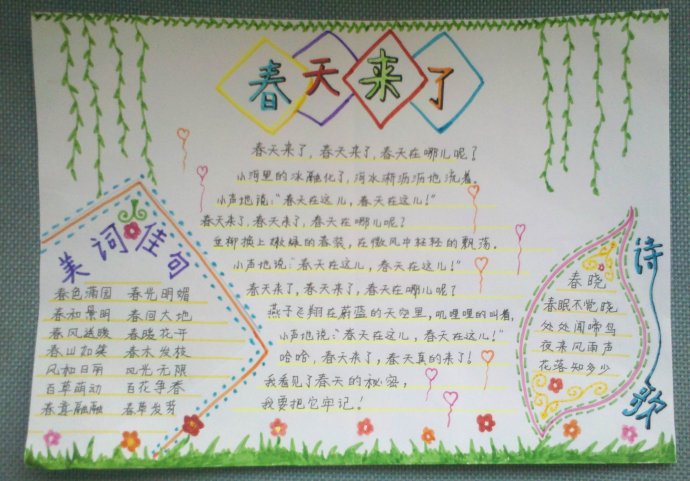 春天来了
春天来了，春天来了，春天在哪儿呢？
小河里的冰融化了，河水淅沥沥地流着，
小声地说："春天在这儿，春天在这儿！"
春天来了，春天来了，春天在哪儿呢？
垂柳换上嫩绿的春装，在微风中轻轻的飘荡。
小声地说："春天在这儿，春天在这儿！"
春天来了，春天来了，春天在哪儿呢？
燕子飞翔在蔚蓝的天空里，叽哩哩的叫着，
小声地说："春天在这儿，春天在这儿！"
哈哈，春天来了，春天真的来了！
我看见了春天的秘密，
我要把它牢记！
美词佳句
春色满园 春光明媚
春和景明 春回大地
春风送暖 春暖花开
春山如笑 春木发枝
风和日丽 风光无限
百草萌动 百花争春
春意融融 春草发芽
诗歌
春晓
春眠不觉晓
处处闻啼鸟
夜来风雨声
花落知多少